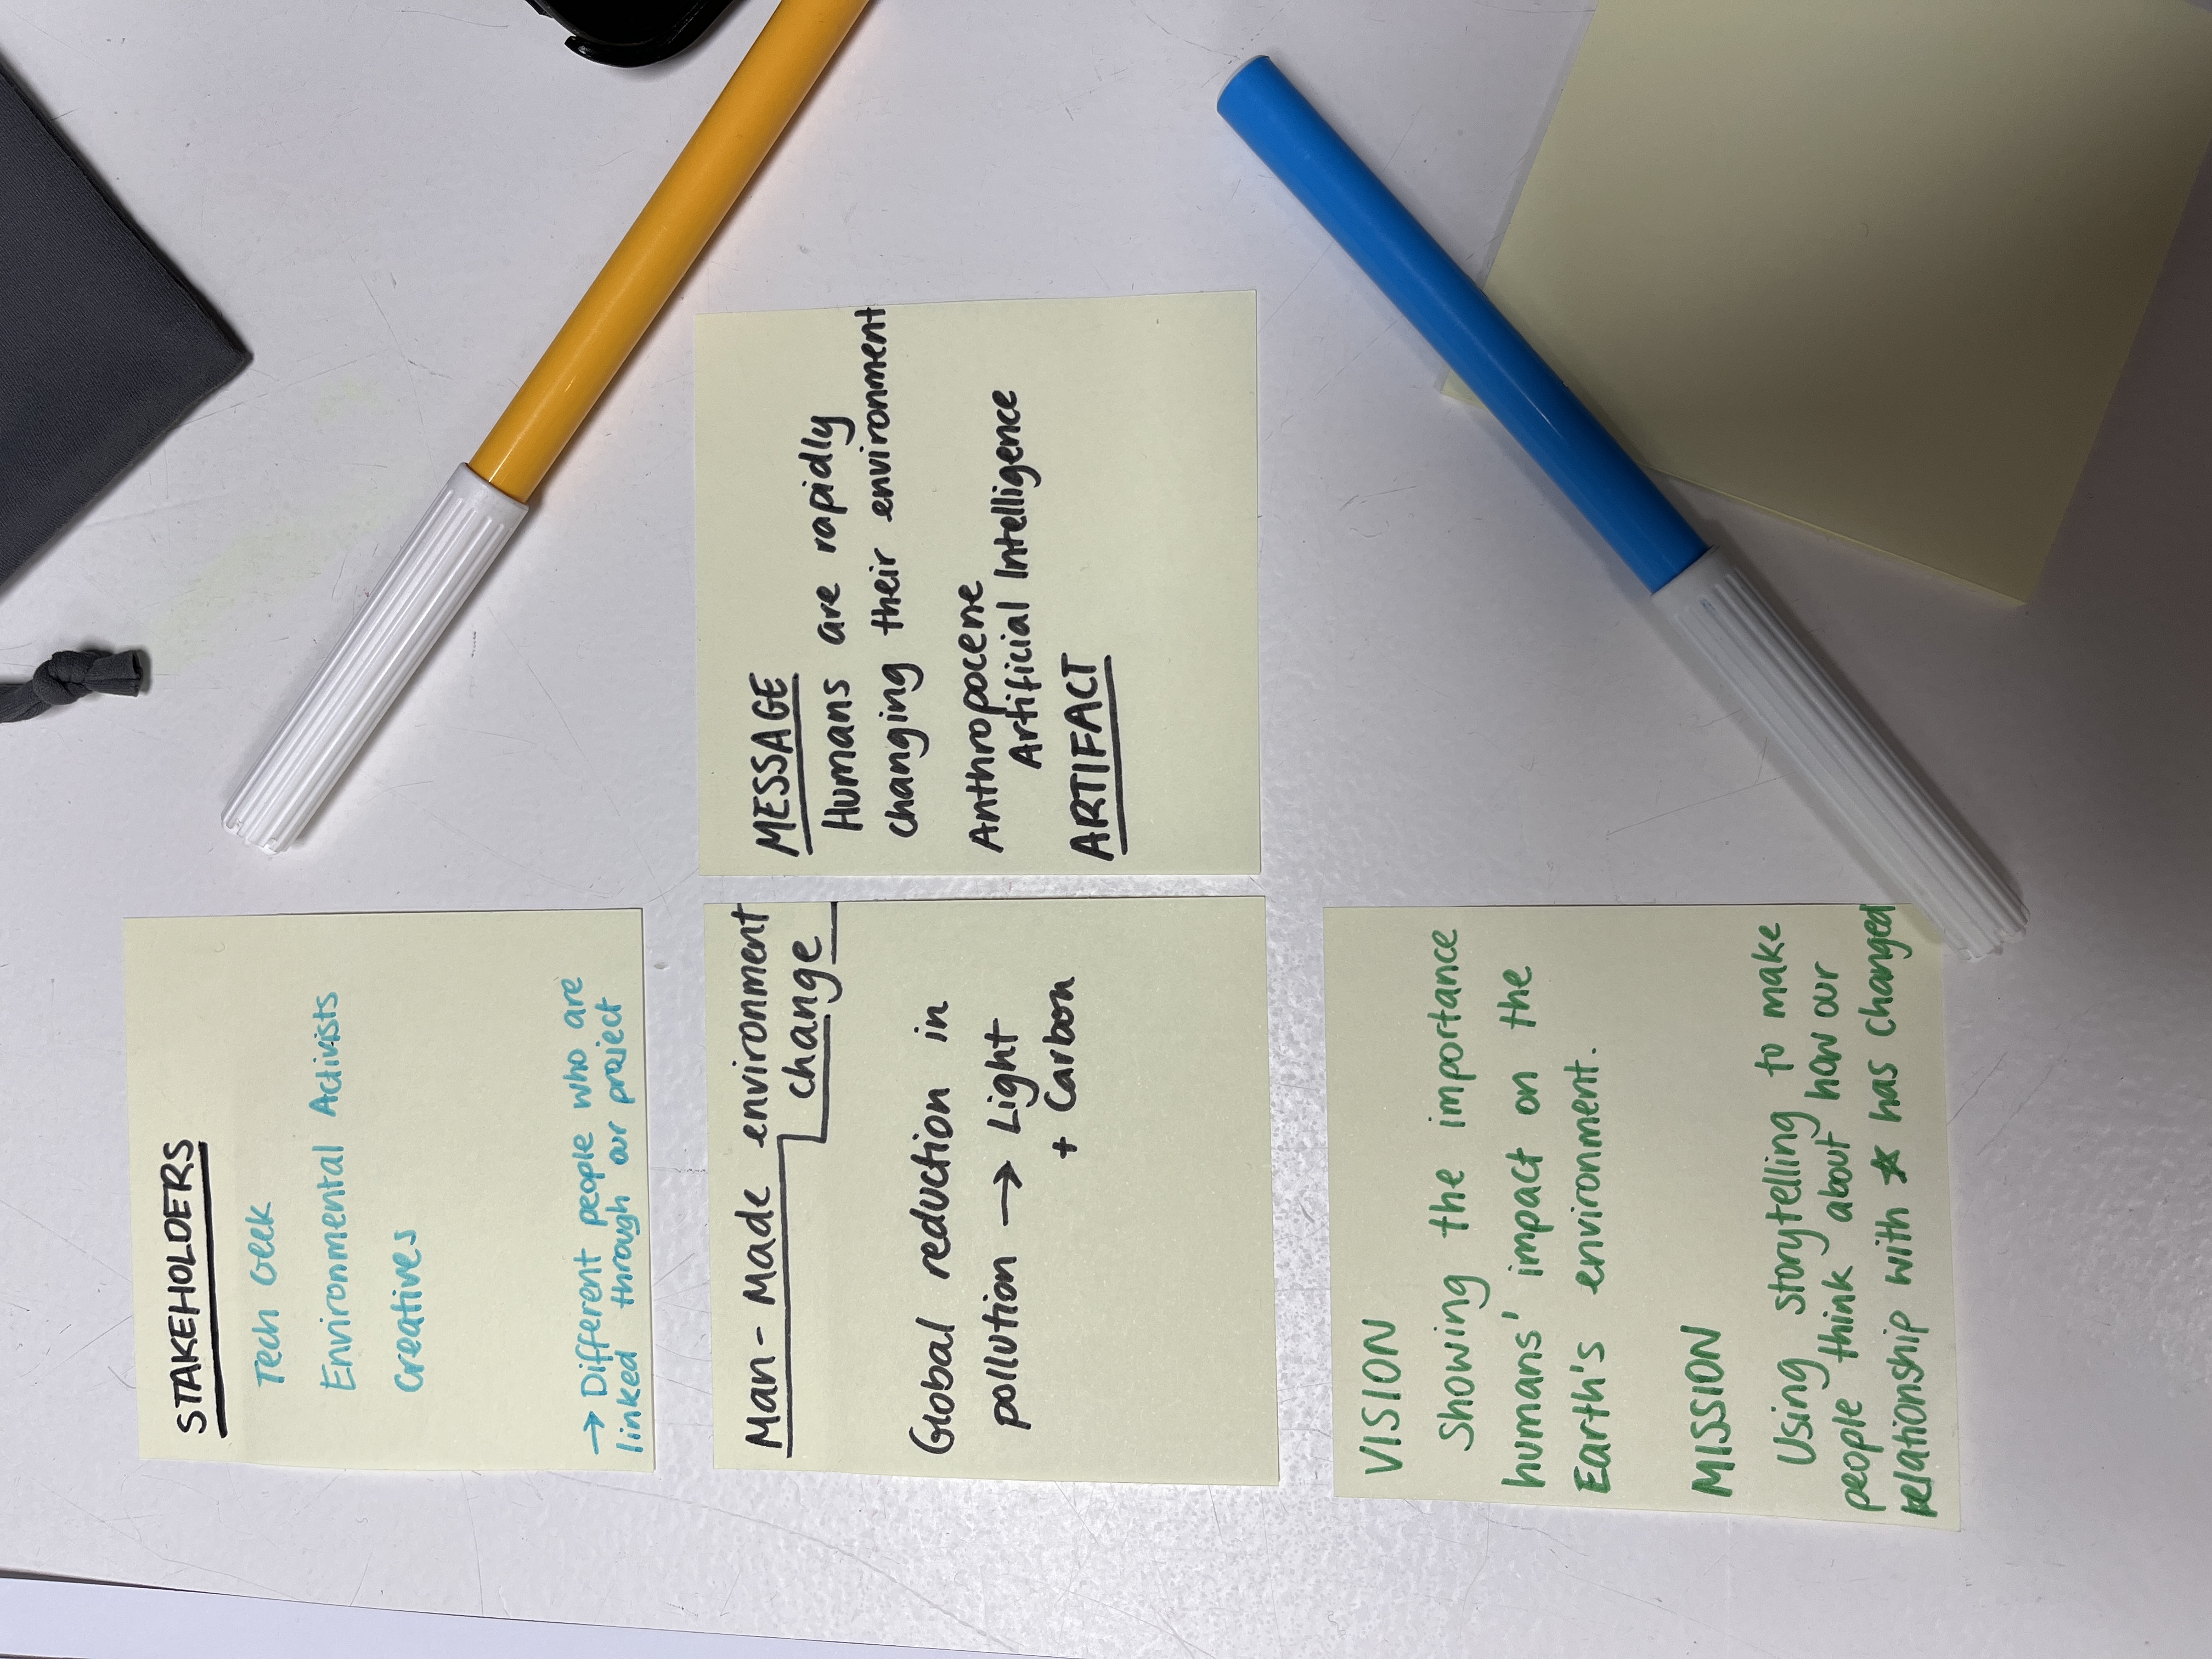 STAKEHOLDERS
Tech Geek
Environmental Activists
Creatives
→ Different people who are
linked through our project
Man-Made environment
change
Global reduction in
pollution → Light
+ Carbon
MESSAGE
Humans are rapidly
changing their environment
Anthropocene
Artificial Intelligence
ARTIFACT
VISION
Showing the importance
humans' impact on the
Earth's environment.
MISSION
Using storytelling to make
people think about how our
relationship with ☆ has changed